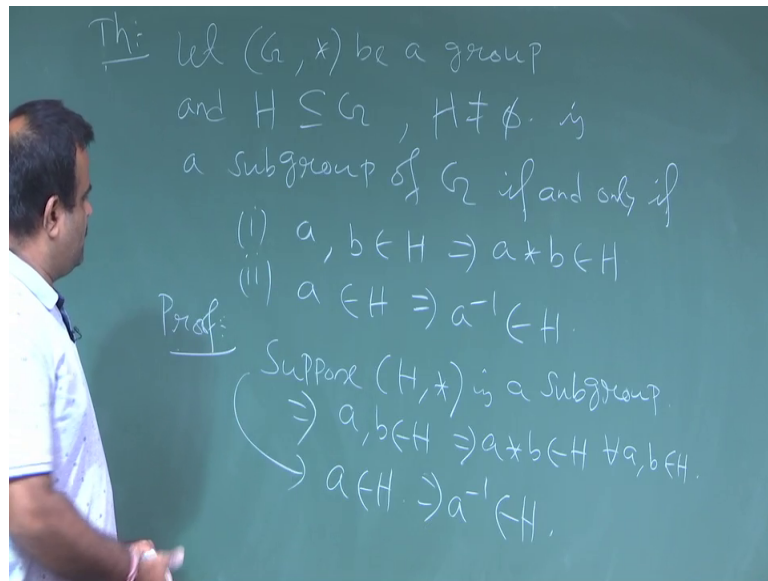 Th: Let (G, *) be a group
and H ⊆ G, H ≠ φ. is
a subgroup of G if and only if
(i) a, b ∈ H ⇒ a * b ∈ H
(ii) a ∈ H ⇒ a⁻¹ ∈ H.
Proof:
Suppose (H, *) is a subgroup.
⇒ a, b ∈ H ⇒ a * b ∈ H ∀ a, b ∈ H.
→ a ∈ H. ⇒ a⁻¹ ∈ H.